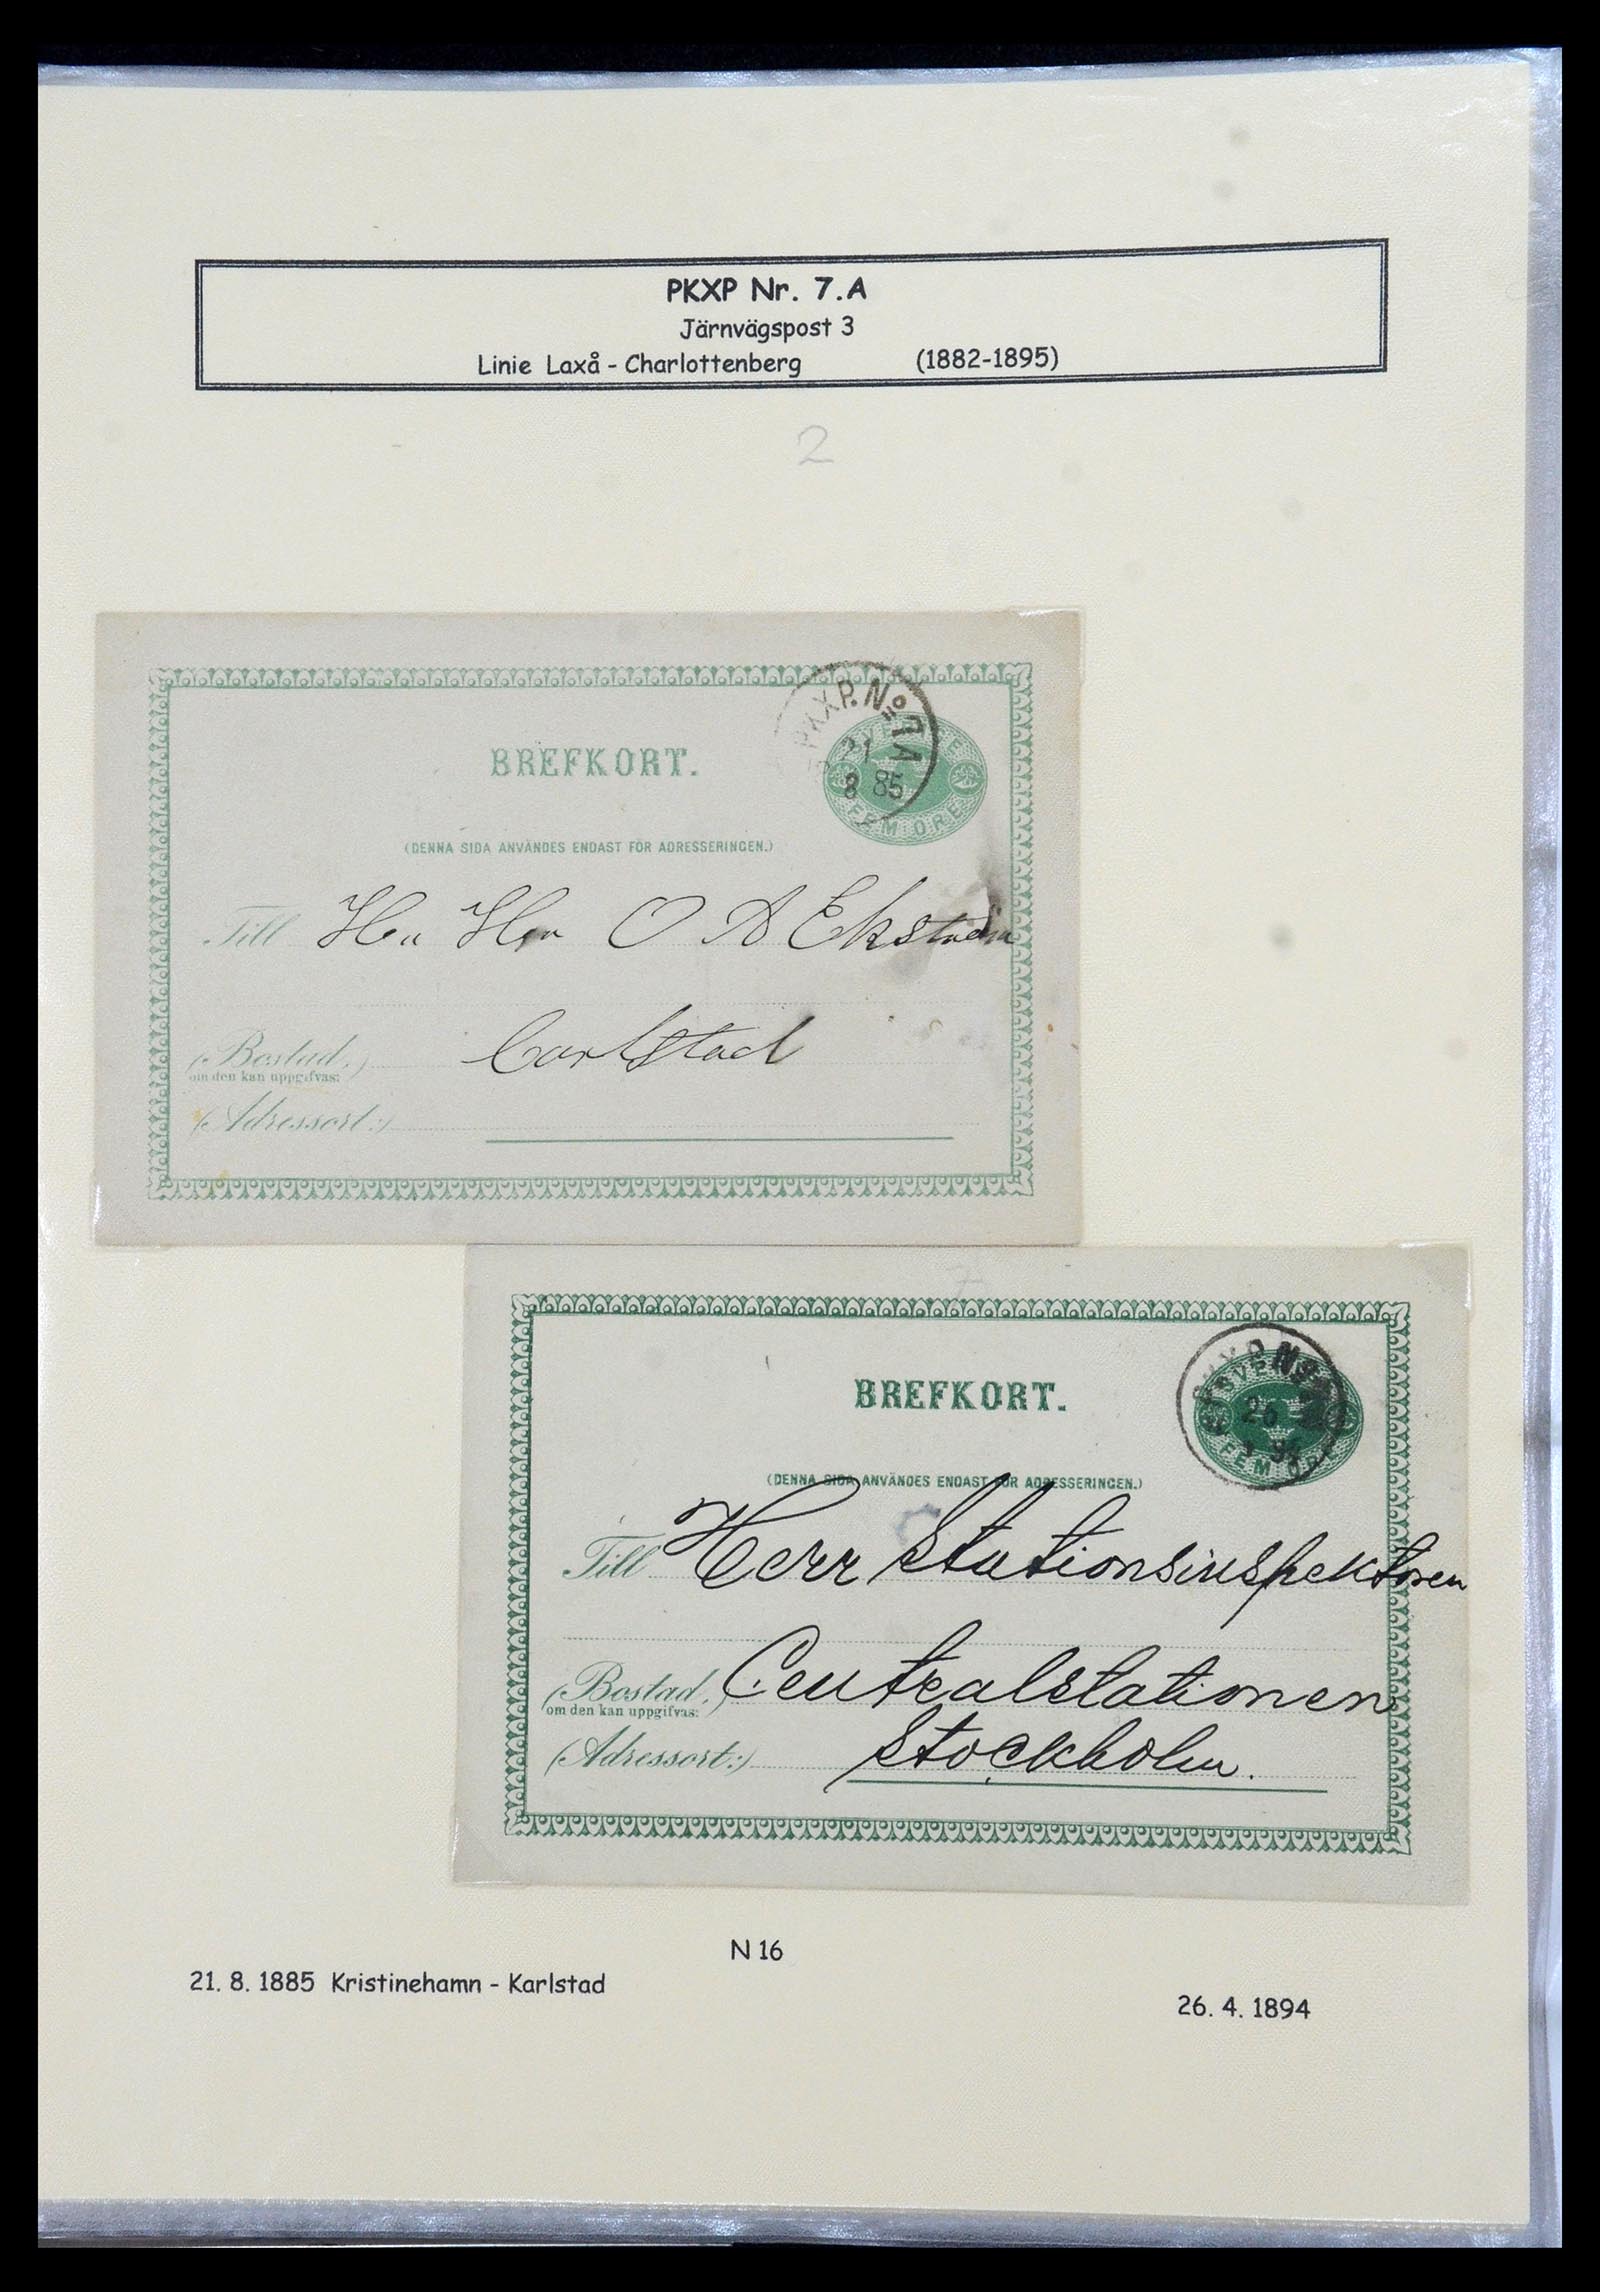 PKXP Nr. 7.A
Järnvägspost 3
Linie Laxå - Charlottenberg (1882-1895)
2
PKXP. No 7A
21
8 85
SVERIGE
FEM ÖRE
BREFKORT.
(DENNA SIDA ANVÄNDES ENDAST FÖR ADRESSERINGEN.)
Till O A
(Bostad,)
om den kan uppgifvas:
Carlstad
(Adressort:)
7
26
FEM ÖRE
BREFKORT.
(DENNA SIDA ANVÄNDES ENDAST FÖR ADRESSERINGEN.)
Till Herr Stationsinspektoren
(Bostad,) Centralstationen
om den kan uppgifvas:
(Adressort:) Stockholm.
N 16
21. 8. 1885 Kristinehamn - Karlstad
26. 4. 1894